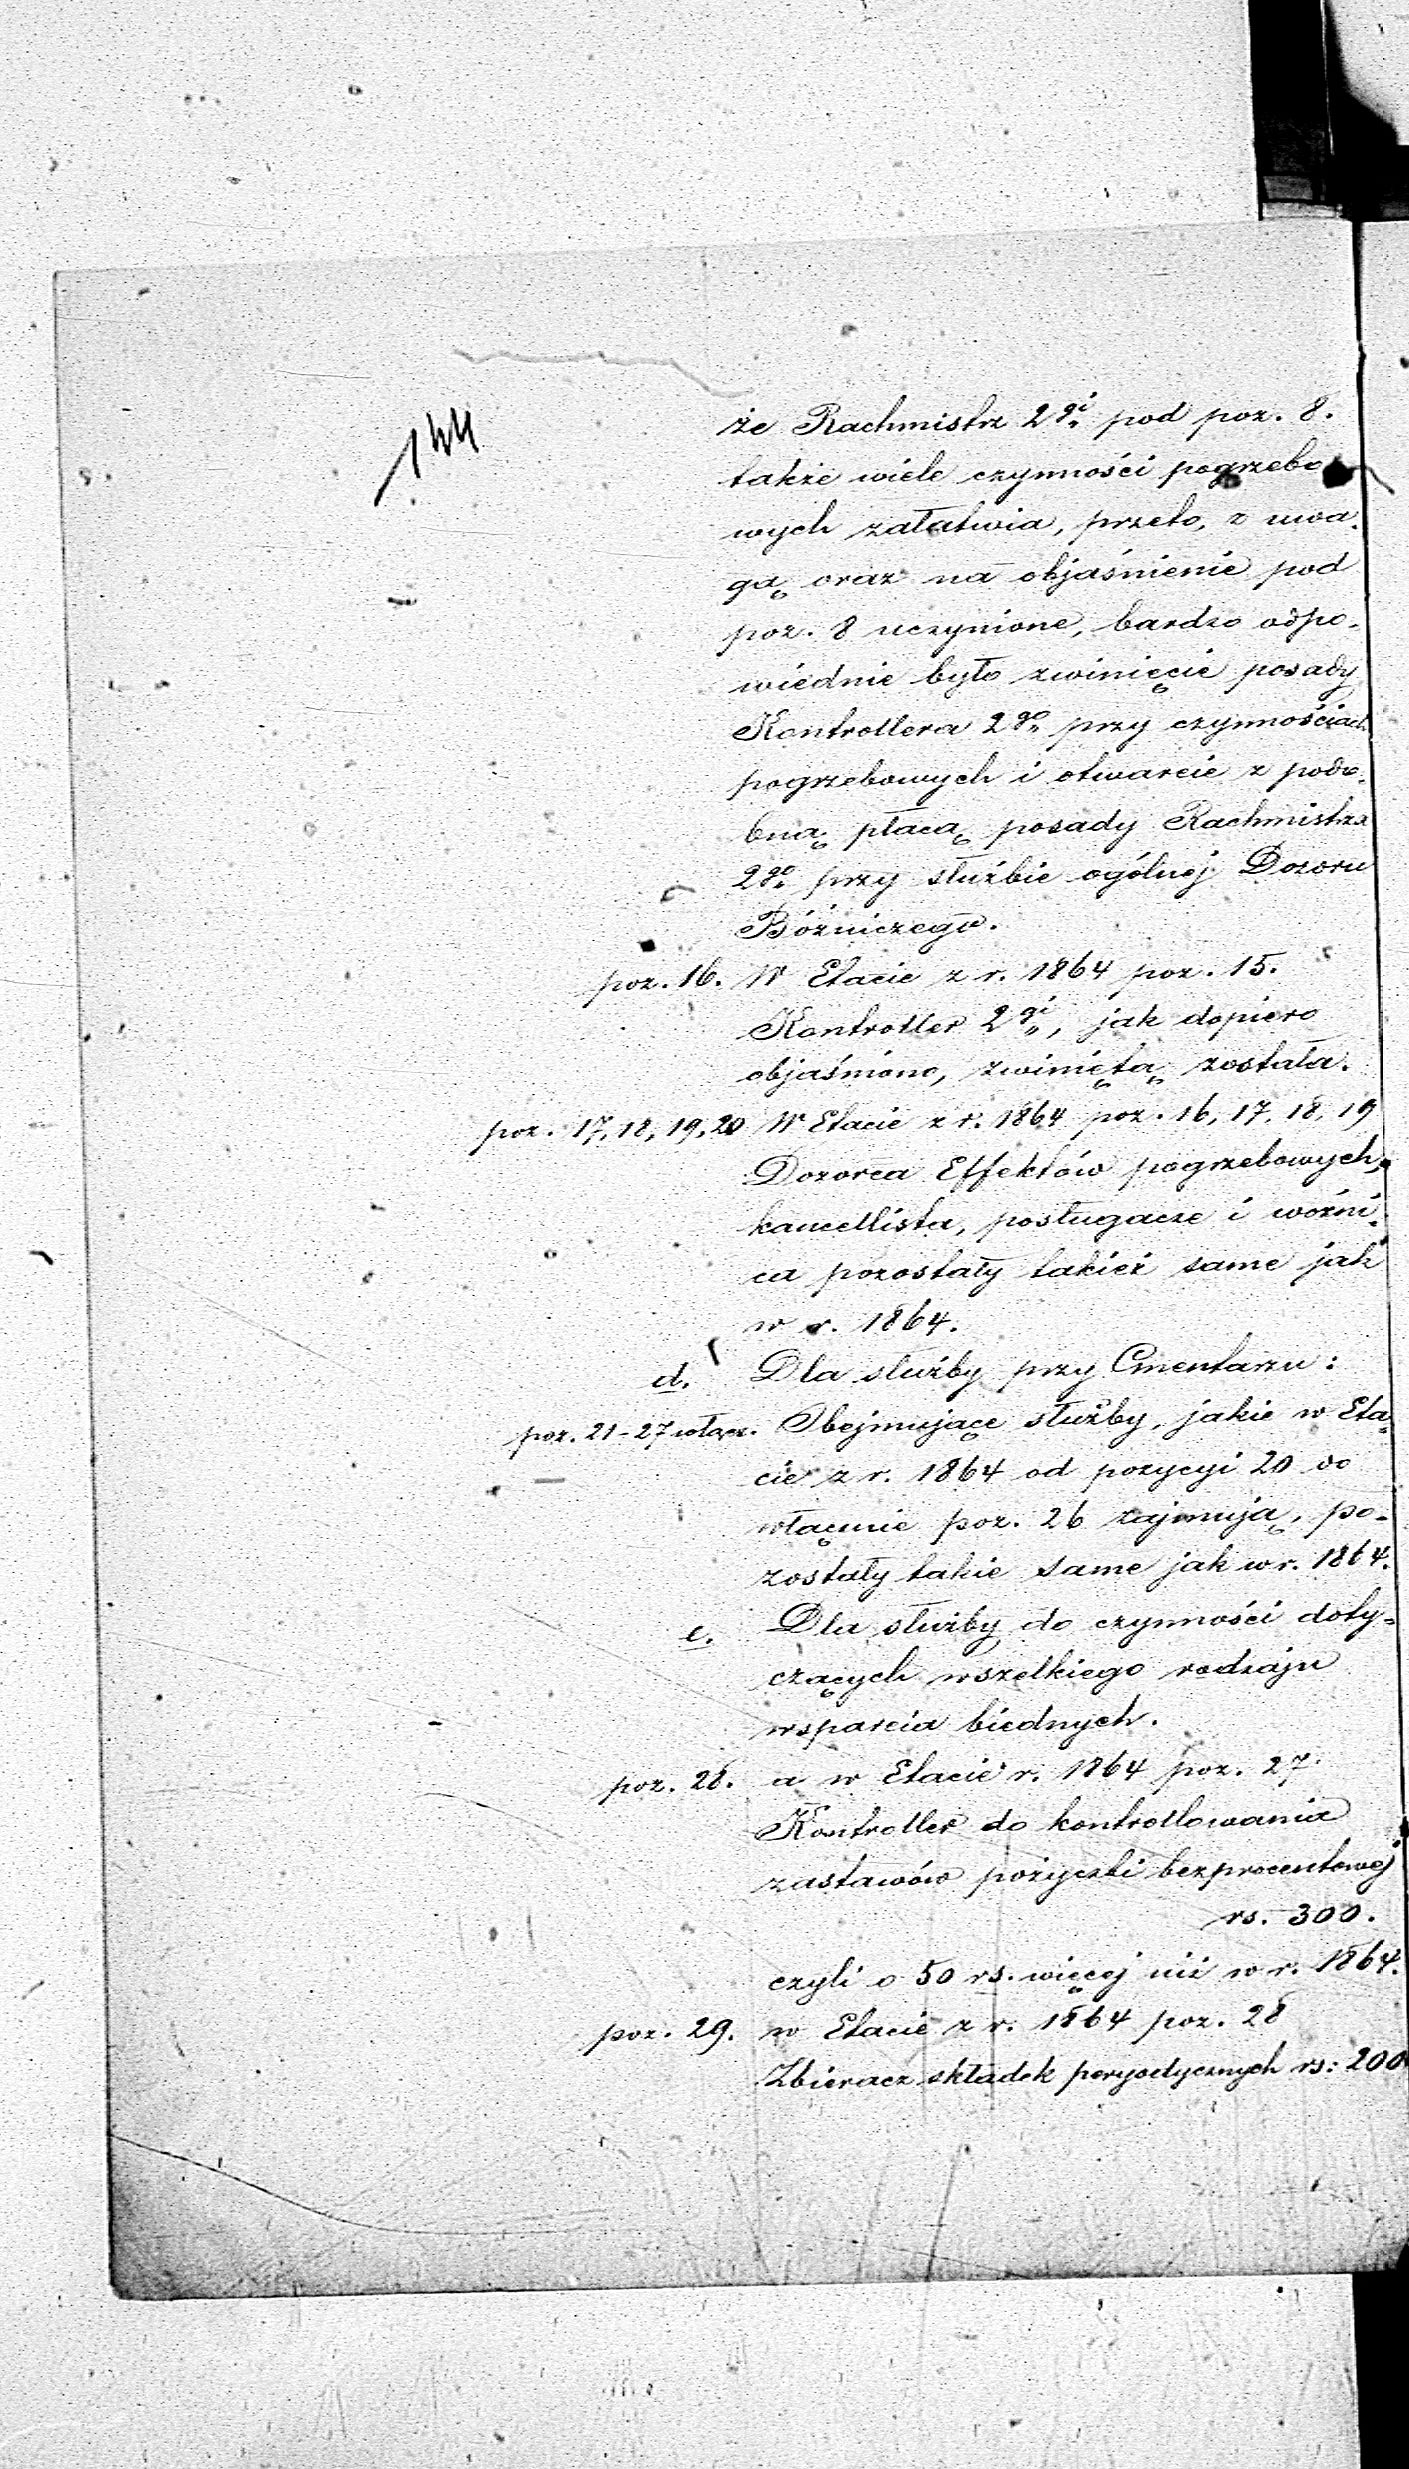 144
że Rachmistrz 2gi pod poz. 8.
także wiele czynności pogrzebo
wych załatwia, przeto, z uwa-
gą oraz na objaśnienie pod
poz. 8 uczynione, bardzo odpo-
wiednie było zwinięcie posady
Kontrollera 2go przy czynnościach
pogrzebowych i otwarcie z podo-
bną płacą posady Rachmistrza
2go przy służbie ogólnej Dozoru
Bóżniczego.
poz. 16. W Etacie z r. 1864 poz. 15.
Kontroller 2gi, jak dopiero
objaśniono, zwiniętą została.
poz. 17, 18, 19, 20 W Etacie z r. 1864 poz. 16, 17, 18, 19
Dozorca Effektów pogrzebowych,
kancellista, posługacze i woźni-
ca pozostały takież same jak
w r. 1864.
d. Dla służby przy Cmentarzu:
poz. 21-27 włącz. Obejmujące służby, jakie w Eta-
cie z r. 1864 od pozycyi 20 do
włącznie poz. 26 zajmują, po-
zostały takie same jak w r. 1864.
e. Dla służby do czynności doty-
czących wszelkiego rodzaju
wsparcia biednych.
poz. 28. a w Etacie r. 1864 poz. 27
Kontroller do kontrollowania
zastawów pożyczki bezprocentowej
rs. 300.
czyli o 50 rs. więcej niż w r. 1864.
poz. 29. w Etacie z r. 1864 poz. 28
Zbieracz składek peryodycznych rs: 200